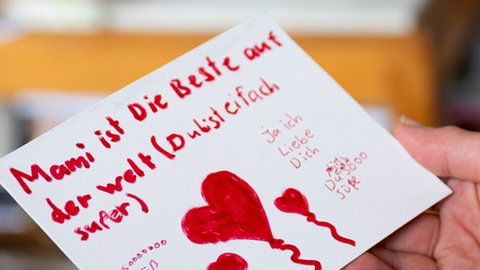 Mami ist Die Beste auf
der welt (Du bist eifach
super)
Ja ich
Liebe
Dich
Du sooo
süße